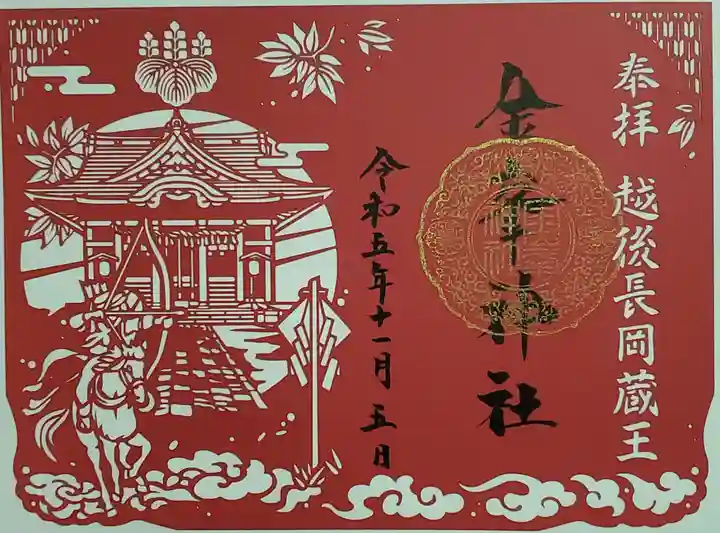 奉拝 越後長岡蔵王
金峯神社
令和五年十一月五日